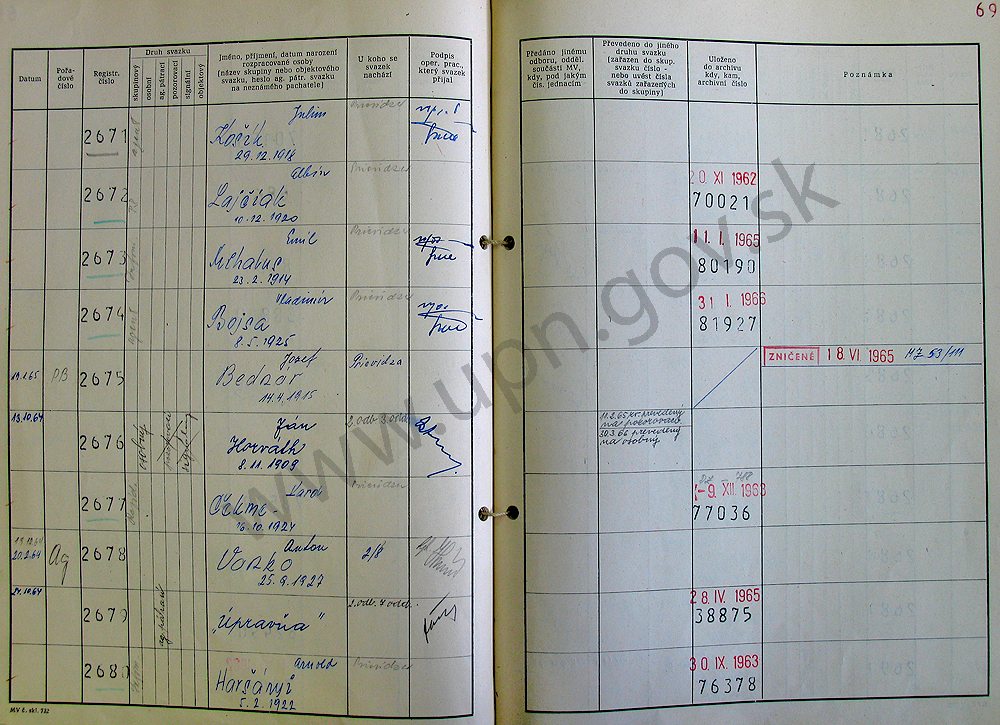 69
Datum
Pořadové číslo
Registr. číslo
Druh svazku
skupinový
osobní
ag. pátrací
pozorovací
signální
objektový
Jméno, příjmení, datum narození
rozpracované osoby
(název skupiny nebo objektového
svazku, heslo ag. pátr. svazku
na neznámého pachatele)
U koho se
svazek
nachází
Podpis
oper. prac.,
který svazek
přijal
Předáno jinému
odboru, odděl.
součásti MV,
kdy, pod jakým
čís. jednacím
Převedeno do jiného
druhu svazku
(zařazen do skup.
svazku číslo -
nebo uvést čísla
svazků zařazených
do skupiny)
Uloženo
do archivu
kdy, kam,
archivní číslo
Poznámka
2671 agent Julius Prievidza
Košík
29.12.1918
2672 Albín Prievidza 20. XI 1962
Lajčiak 70021
10.12.1920
2673 Emil Prievidza 11. I. 1965
80190
23.2.1914
2674 agent Vladimír Prievidza 31 I. 1966
Bojsa 81927
8.5.1925
19.1.65 PB 2675 Jozef Prievidza ZNIČENÉ 18. VI 1965
Bednár
14.4.1915
13.10.64 2676 osobný Ján 2. odb. 3. odd. 11.2.65 kr. prevedený
na pozorovací
Horváth 30.3.66 prevedený
na osobný
8.11.1909
2677 Karol Prievidza -9. XII. 1963
77036
16.10.1924
20.2.64 Ag 2678 Anton 2/8
Vazko
25.9.1927
21.10.64 2679 ag. pátrací „Úpravňa" 28. IV. 1965
38875
2680 Arnold Prievidza 30. IX. 1963
Haršányi 76378
5.2.1922
MV č. skl. 732
www.upn.gov.sk